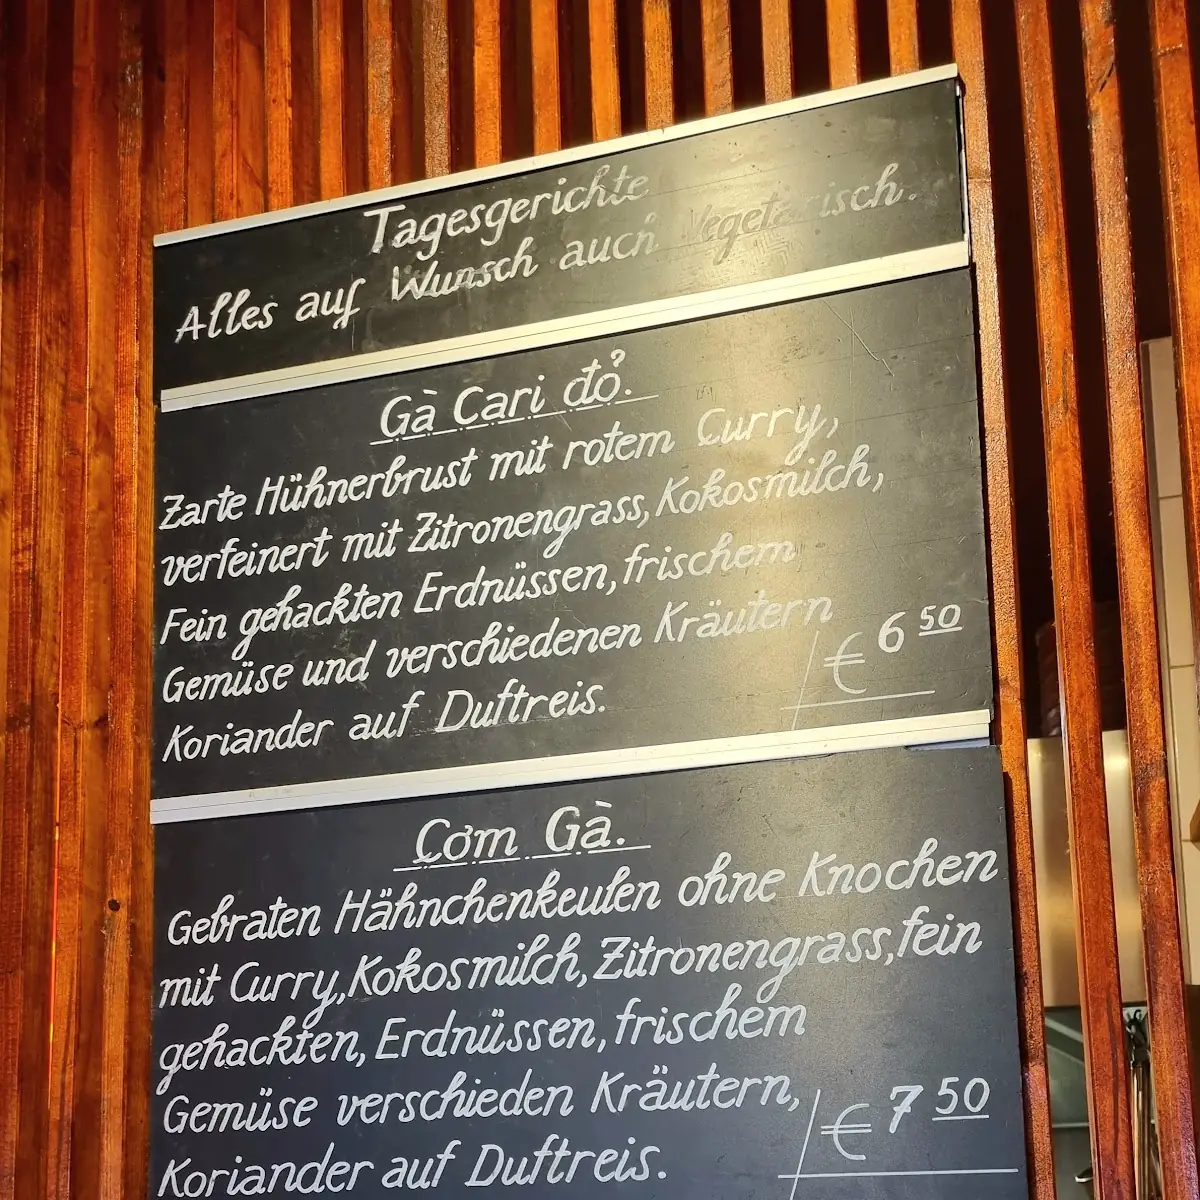 Tagesgerichte
Alles auf Wunsch auch Vegetarisch.
Gà Cari đỏ.
Zarte Hühnerbrust mit rotem Curry,
verfeinert mit Zitronengrass, Kokosmilch,
Fein gehackten Erdnüssen, frischem
Gemüse und verschiedenen Kräutern
Koriander auf Duftreis.
€ 6 50
Cơm Gà.
Gebraten Hähnchenkeulen ohne Knochen
mit Curry, Kokosmilch, Zitronengrass, fein
gehackten, Erdnüssen, frischem
Gemüse verschieden Kräutern,
Koriander auf Duftreis.
€ 7 50